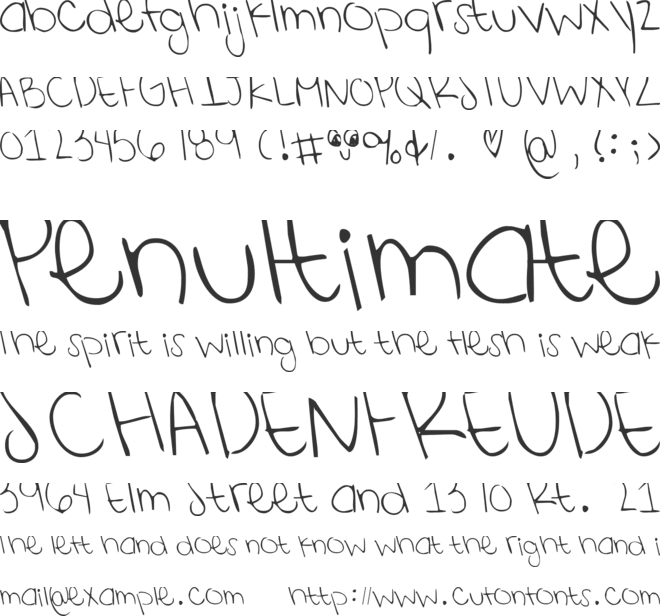 abcdefghijklmnopqrstuvwxyz
ABCDEFGHIJKLMNOPQRSTUVWXYZ
0123456789 (!#%¢/. @,?:;)
Penultimate
The spirit is willing but the flesh is weak
SCHADENFREUDE
3964 Elm Street and 1370 Rt. 21
The left hand does not know what the right hand i
mail@example.com http://www.cutontonts.com